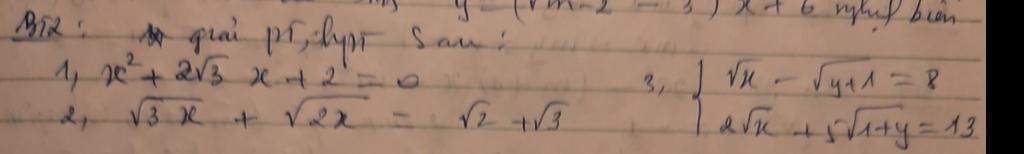 y = (√m-2 - 3) x + 6 nghịch biến
BT2: giải pt, hpt sau:
1, x² + 2√3 x + 2 = 0
2, √3x + √2x = √2 + √3
3, { √x - √y+1 = 8
2√x + 5√1+y = 13